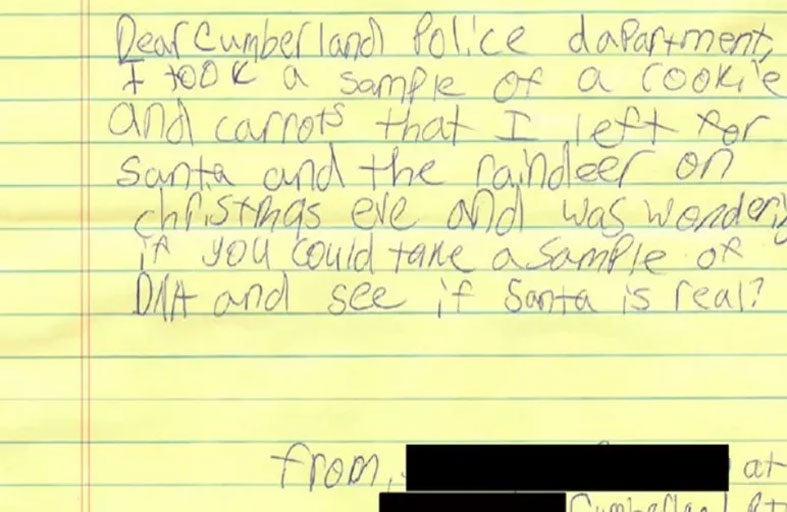 Dear Cumberland Police dapartment,
I took a sample of a cookie
and carrots that I left for
Santa and the raindeer on
christmas eve and was wondering
if you could take a sample of
DNA and see if Santa is real?
from,
at